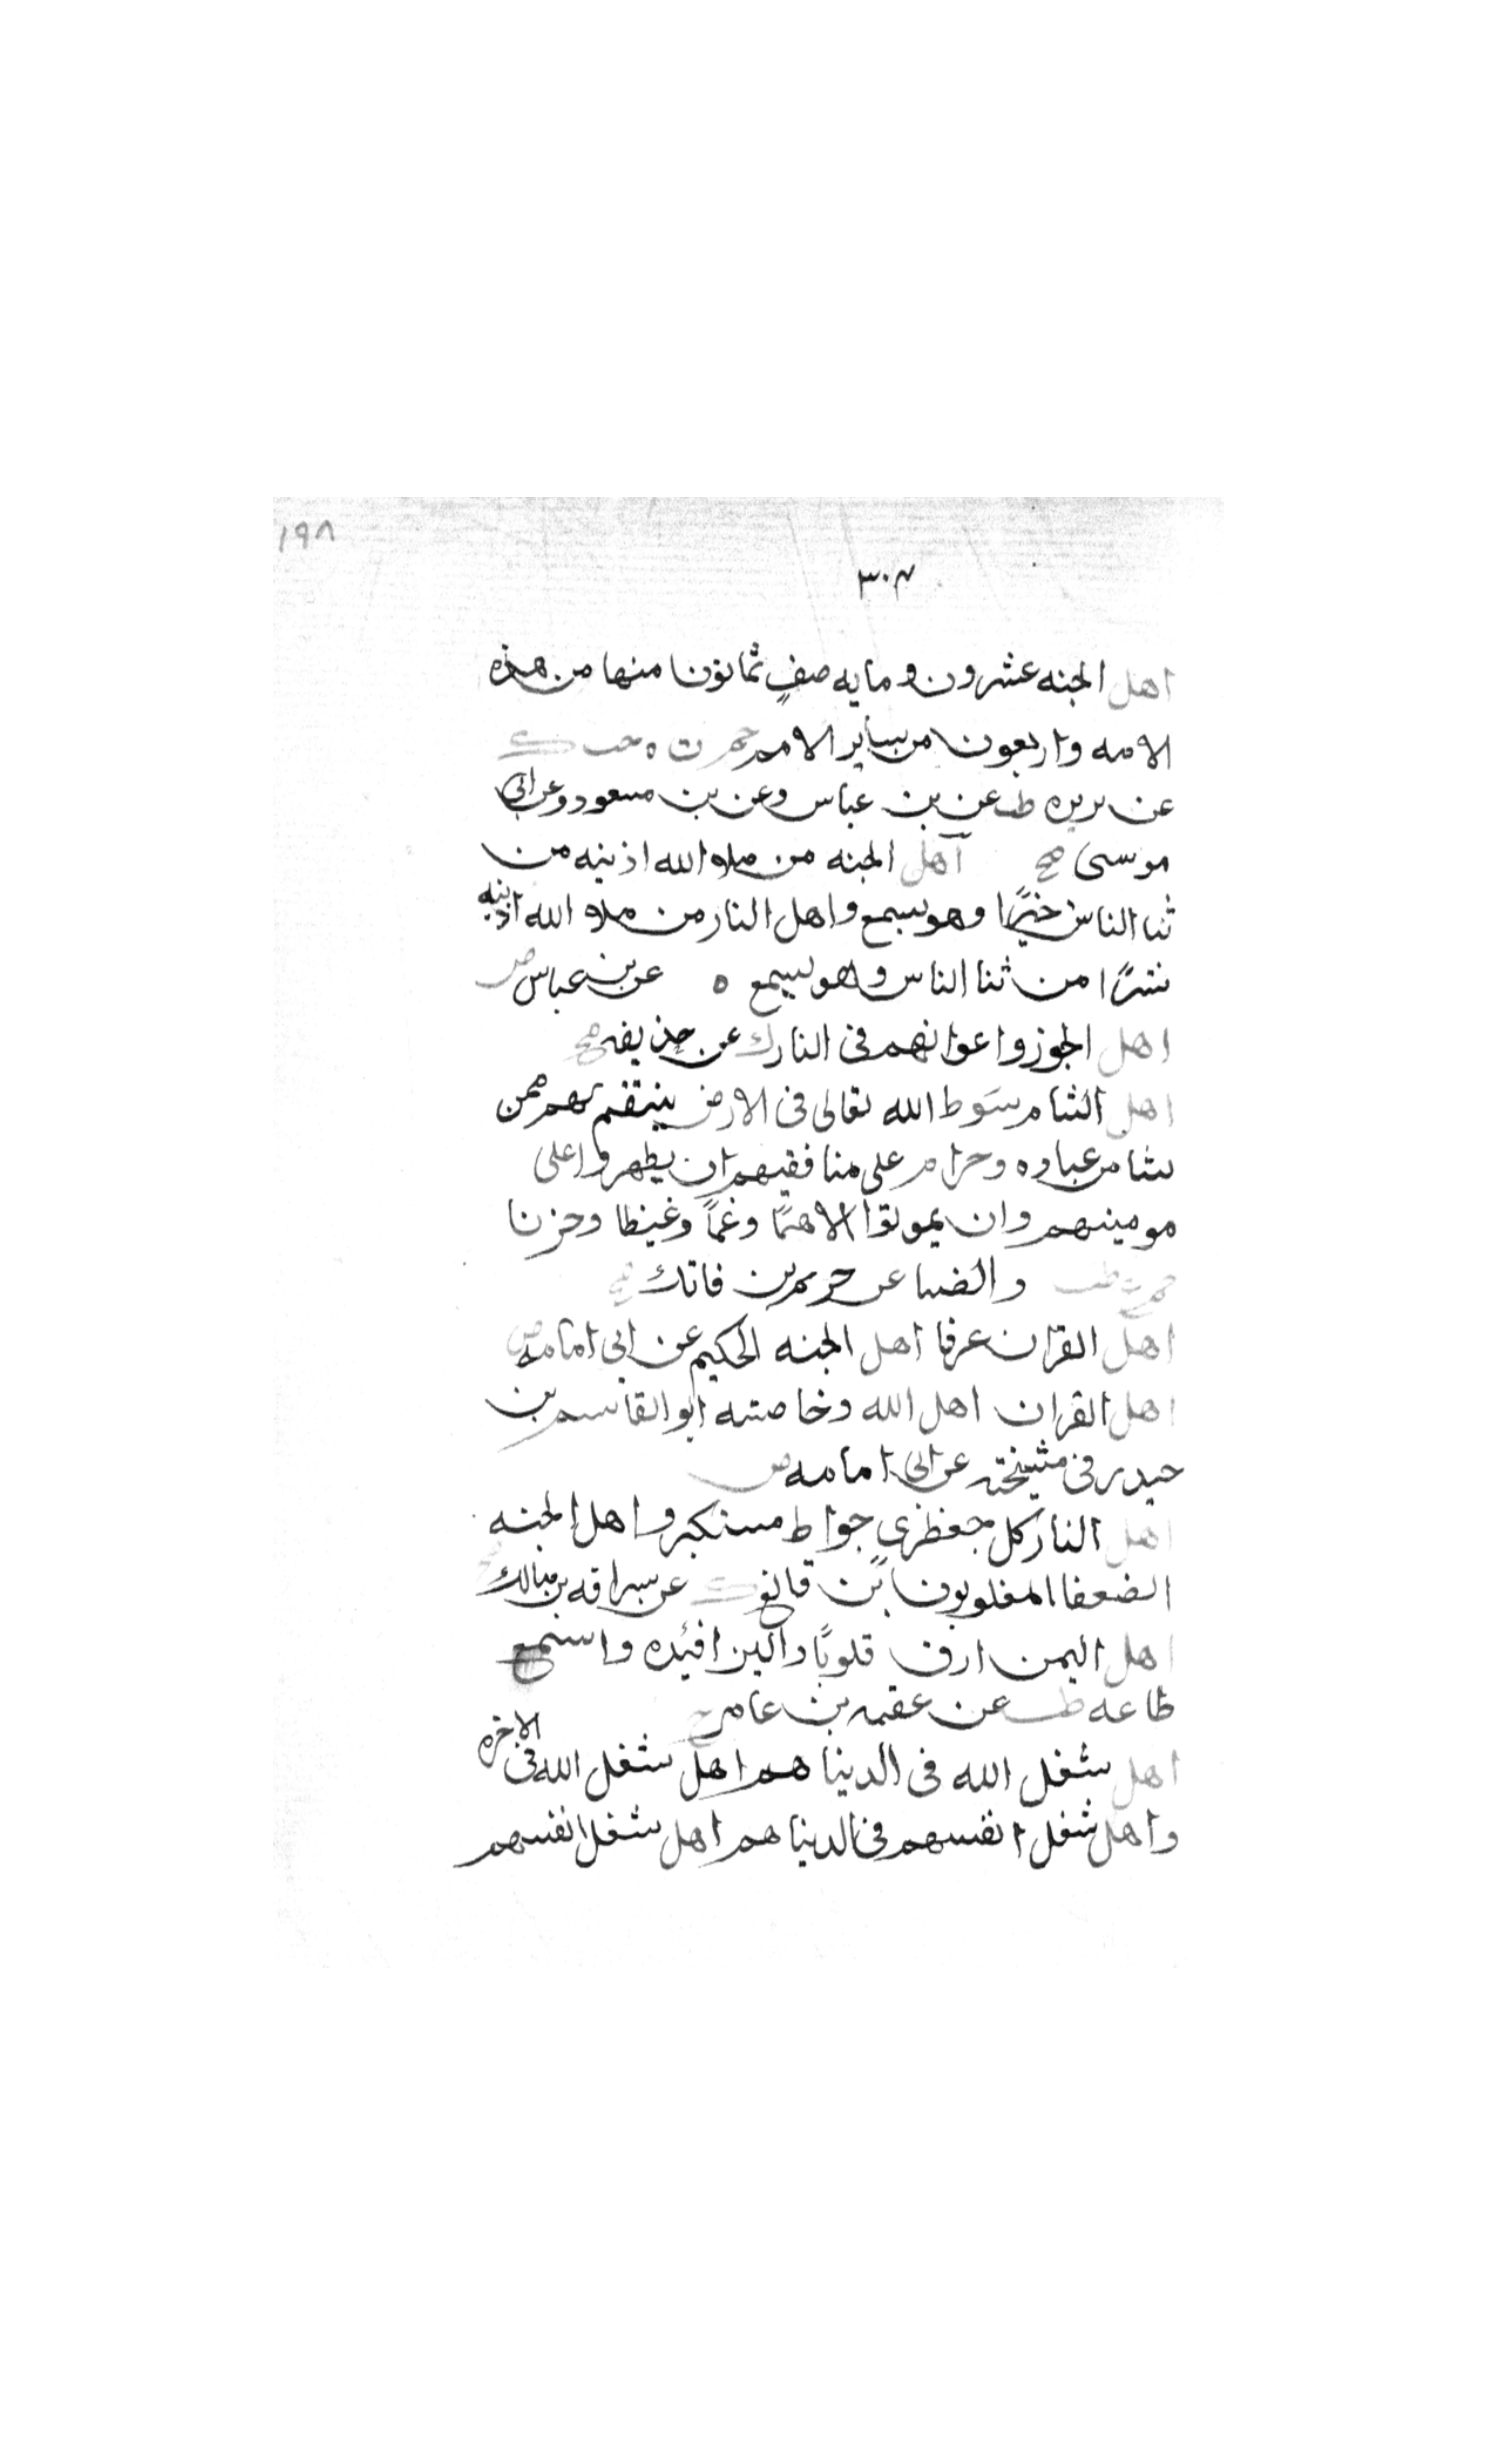 ١٩٨
٣٠٣
اهل الجنه عشرون ومايه صفٍ ثمانون منها من هذه
الامه واربعون من ساير الامم حم ت ه حب ك
عن بريره طب عن بن عباس وعن بن مسعود وعن ابي
موسى صح اهل الجنه من ملاء الله اذنيه من
ثنا الناس خيرًا وهو يسمع واهل النار من ملاء الله اذنيه
شرًا من ثنا الناس وهو يسمع ه عن بن عباس ض
اهل الجوز واعوانهم فى النار ك عن حذيفه صح
اهل الشام سَوط الله تعالى فى الارض ينتقم بهم ممن
يشا من عباده وحرام على منافقيهم ان يظهروا على
مومنيهم وان يموتوا الا همًا وغمًا وغيظا وحزنا
حم ع طب والضيا عن خريم بن فاتك صح
اهل القران عرفا اهل الجنه الحكيم عن ابى امامه ض
اهل القران اهل الله وخاصته ابو القاسم بن
حيدر فى مشيخته عن ابى امامه ض
اهل النار كل جعظرى جواظ مستكبر واهل الجنه
الضعفا المغلوبون بن قانع ك عن سراقه بن مالك صح
اهل اليمن ارق قلوبًا والين افئده واسمع
طاعه طب عن عقبه بن عامر ح
اهل شغل الله فى الدنيا هم اهل شغل الله فى الاخره
واهل شغل انفسهم فى الدنيا هم اهل شغل انفسهم